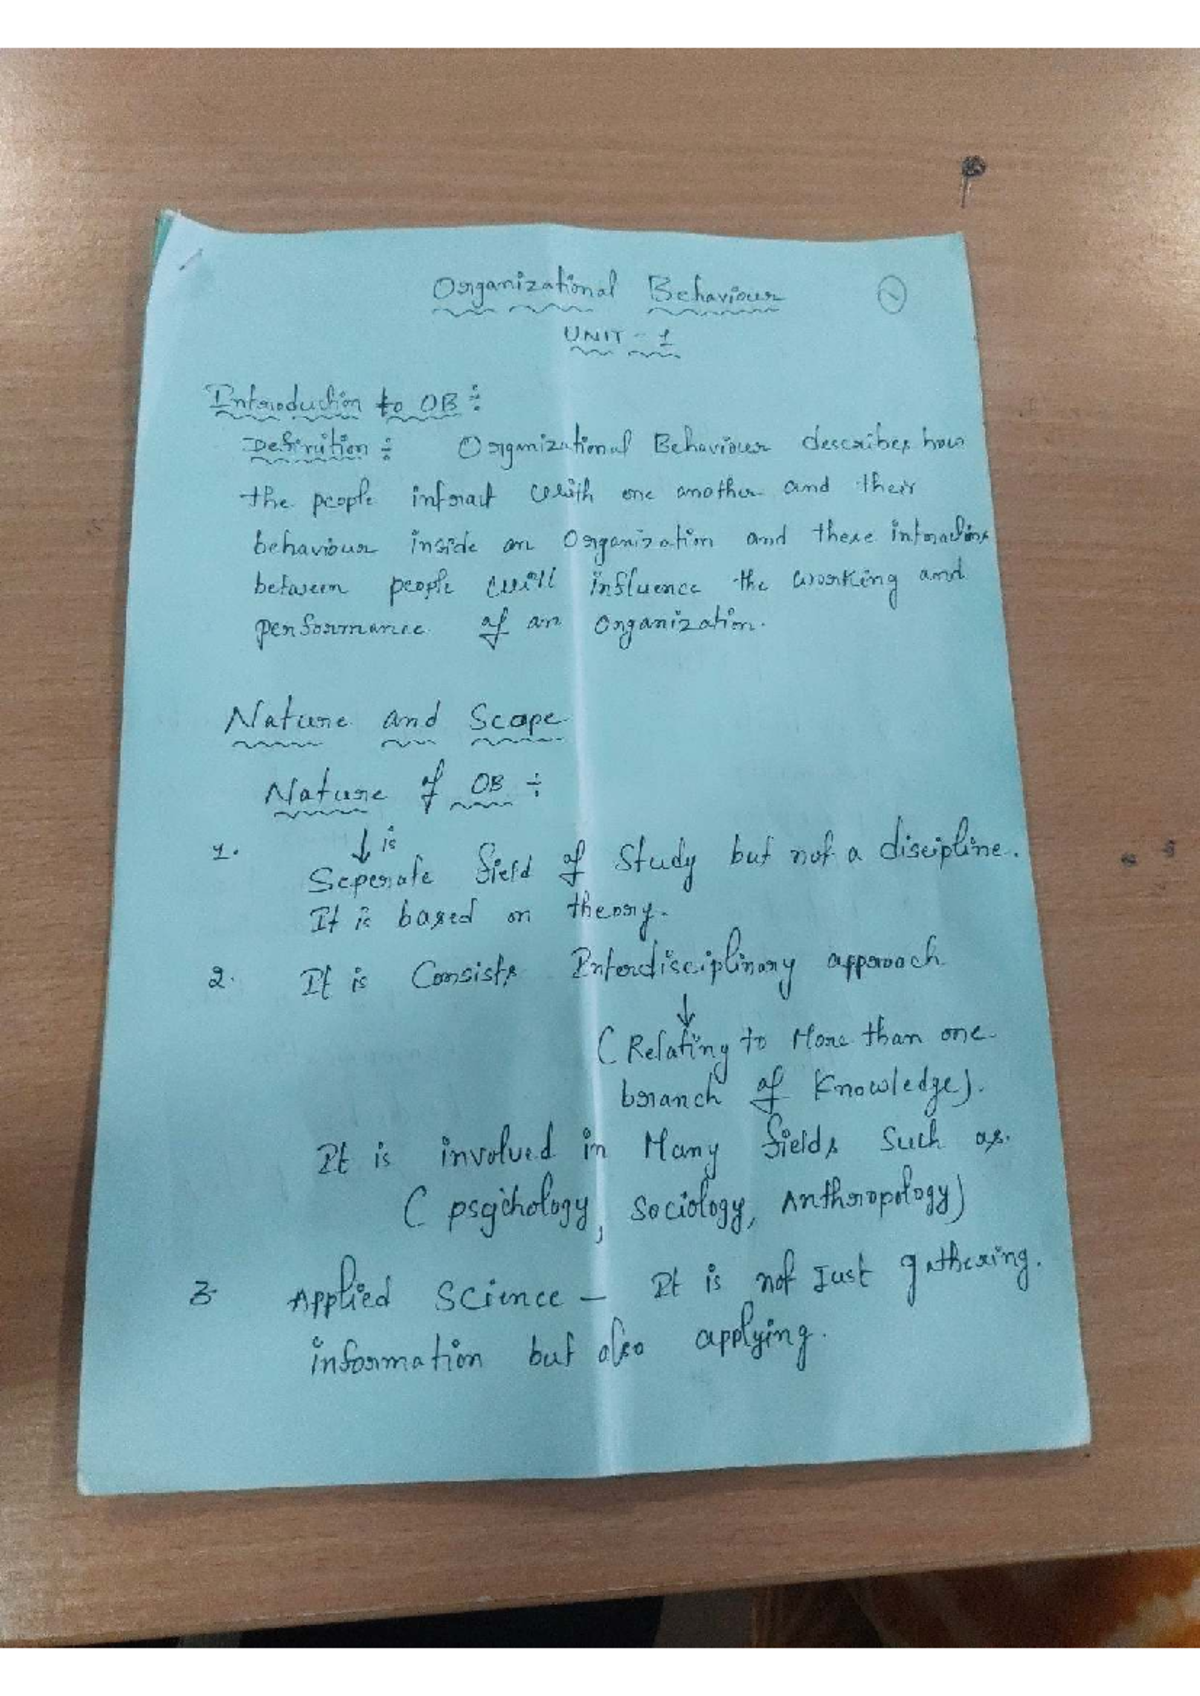 Organizational Behaviour
UNIT - 1
Introduction to OB ÷
Definition ÷ Organizational Behaviour describes how
the people interact with one another and their
behaviour inside an Organization and these interactions
between people will influence the working and
performance of an Organization.
Nature and Scope
Nature of OB ÷
1. ↓ is
Seperate field of Study but not a discipline.
It is based on theory.
2. It is Consists Interdisciplinary approach
↓
( Relating to More than one
branch of Knowledge).
It is involved in Many fields Such as
( psychology, Sociology, Anthropology)
3. Applied Science - It is not Just gathering
information but also applying.